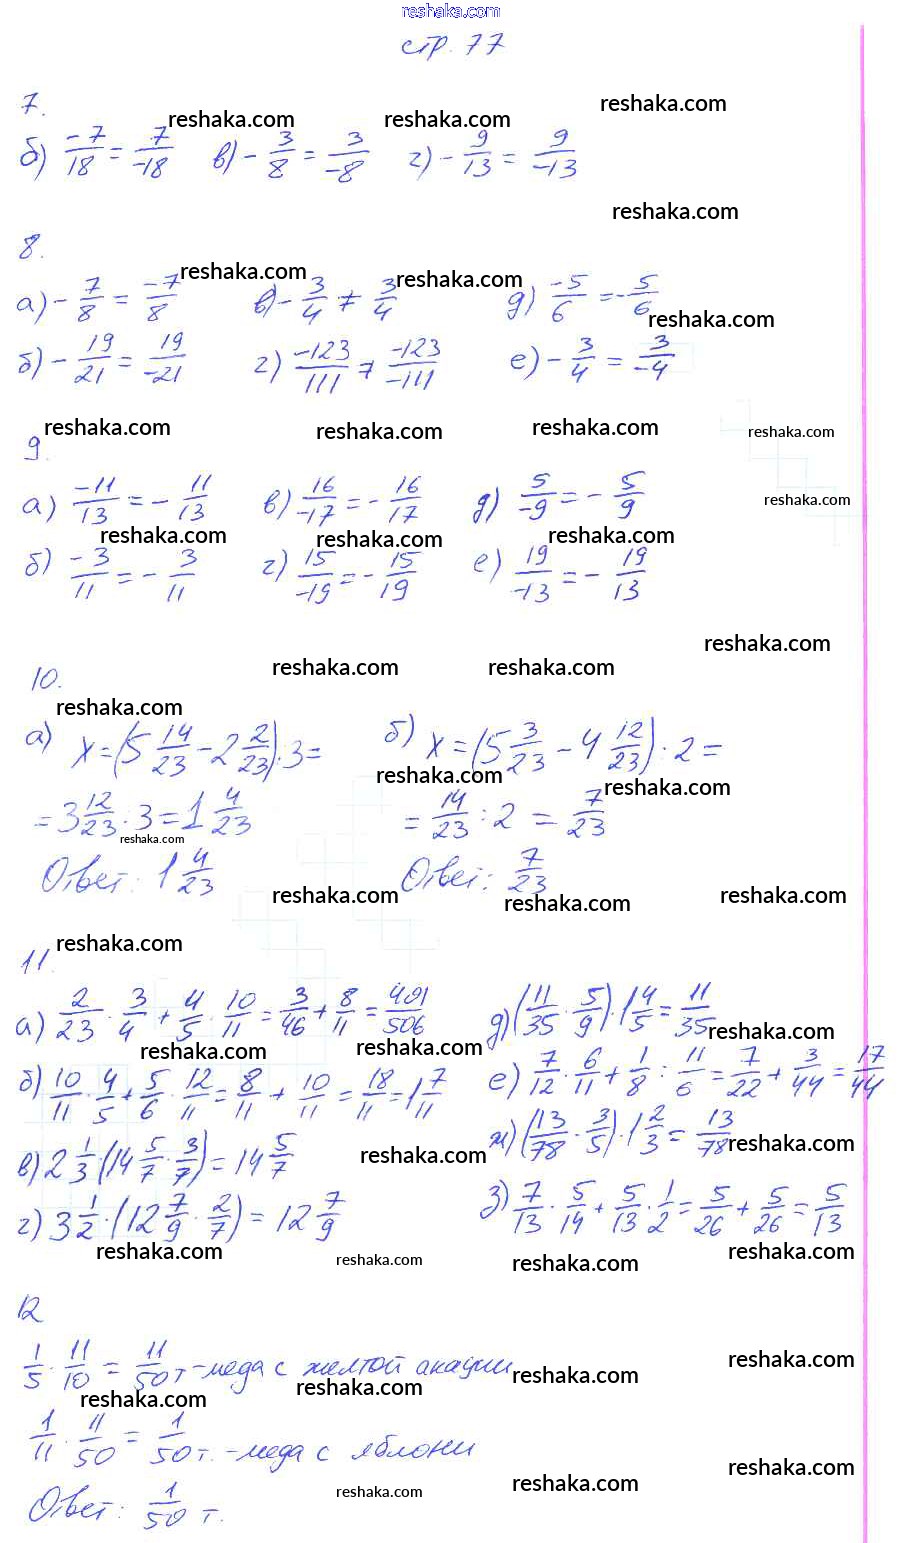 reshaka.com
стр. 77
7.
reshaka.com reshaka.com reshaka.com
б) -7/18 = 7/-18 в) - 3/8 = 3/-8 г) - 9/13 = 9/-13
reshaka.com
8.
reshaka.com reshaka.com
а) - 7/8 = -7/8 в) - 3/4 ≠ 3/4 д) -5/6 = - 5/6
reshaka.com
б) - 19/21 = 19/-21 г) -123/111 ≠ -123/-111 е) - 3/4 = 3/-4
reshaka.com reshaka.com reshaka.com reshaka.com
9.
reshaka.com
а) -11/13 = - 11/13 в) 16/-17 = - 16/17 д) 5/-9 = - 5/9
reshaka.com reshaka.com reshaka.com
б) -3/11 = - 3/11 г) 15/-19 = - 15/19 е) 19/-13 = - 19/13
reshaka.com
10.
reshaka.com reshaka.com
reshaka.com
а) x = (5 14/23 - 2 2/23) : 3 = б) x = (5 3/23 - 4 12/23) : 2 =
reshaka.com reshaka.com
= 3 12/23 : 3 = 1 4/23 = 14/23 : 2 = 7/23
reshaka.com
Ответ: 1 4/23 Ответ: 7/23
reshaka.com reshaka.com reshaka.com
reshaka.com
11.
а) 2/23 · 3/4 + 4/5 · 10/11 = 3/46 + 8/11 = 401/506 д) (11/35 · 5/9) · 1 4/5 = 11/35
reshaka.com reshaka.com reshaka.com
б) 10/11 · 4/5 + 5/6 · 12/11 = 8/11 + 10/11 = 18/11 = 1 7/11 е) 7/12 · 6/11 + 1/8 : 11/6 = 7/22 + 3/44 = 17/44
в) 2 1/3 · (14 5/7 · 3/7) = 14 5/7 ж) (13/78 · 3/5) · 1 2/3 = 13/78
reshaka.com reshaka.com
г) 3 1/2 · (12 7/9 · 2/7) = 12 7/9 з) 7/13 · 5/14 + 5/13 · 1/2 = 5/26 + 5/26 = 5/13
reshaka.com reshaka.com reshaka.com reshaka.com
12
1/5 · 11/10 = 11/50 т - меда с желтой акации
reshaka.com reshaka.com reshaka.com reshaka.com
1/11 · 11/50 = 1/50 т. - меда с яблони
reshaka.com reshaka.com reshaka.com
Ответ: 1/50 т.